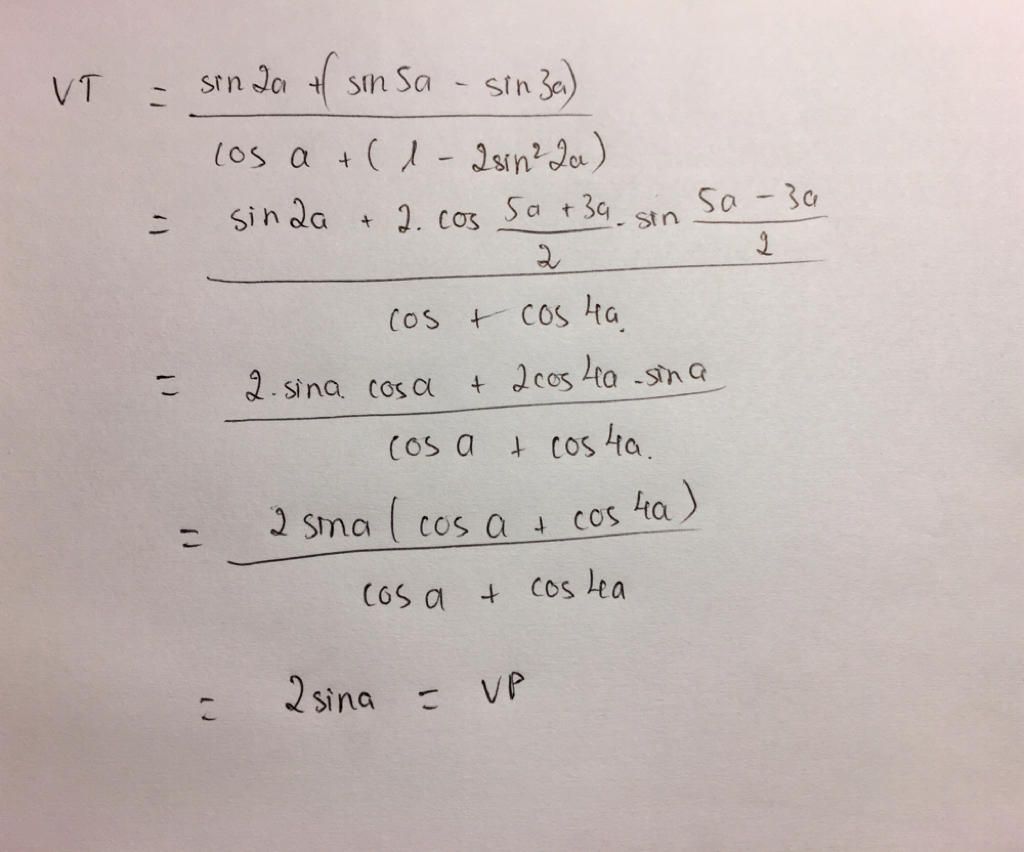 VT = sin 2a + (sin 5a - sin 3a)
cos a + (1 - 2sin² 2a)
= sin 2a + 2. cos (5a + 3a)/2 . sin (5a - 3a)/2
cos + cos 4a.
= 2. sina. cos a + 2cos 4a . sin a
cos a + cos 4a.
= 2 sina (cos a + cos 4a)
cos a + cos 4a
= 2 sina = VP